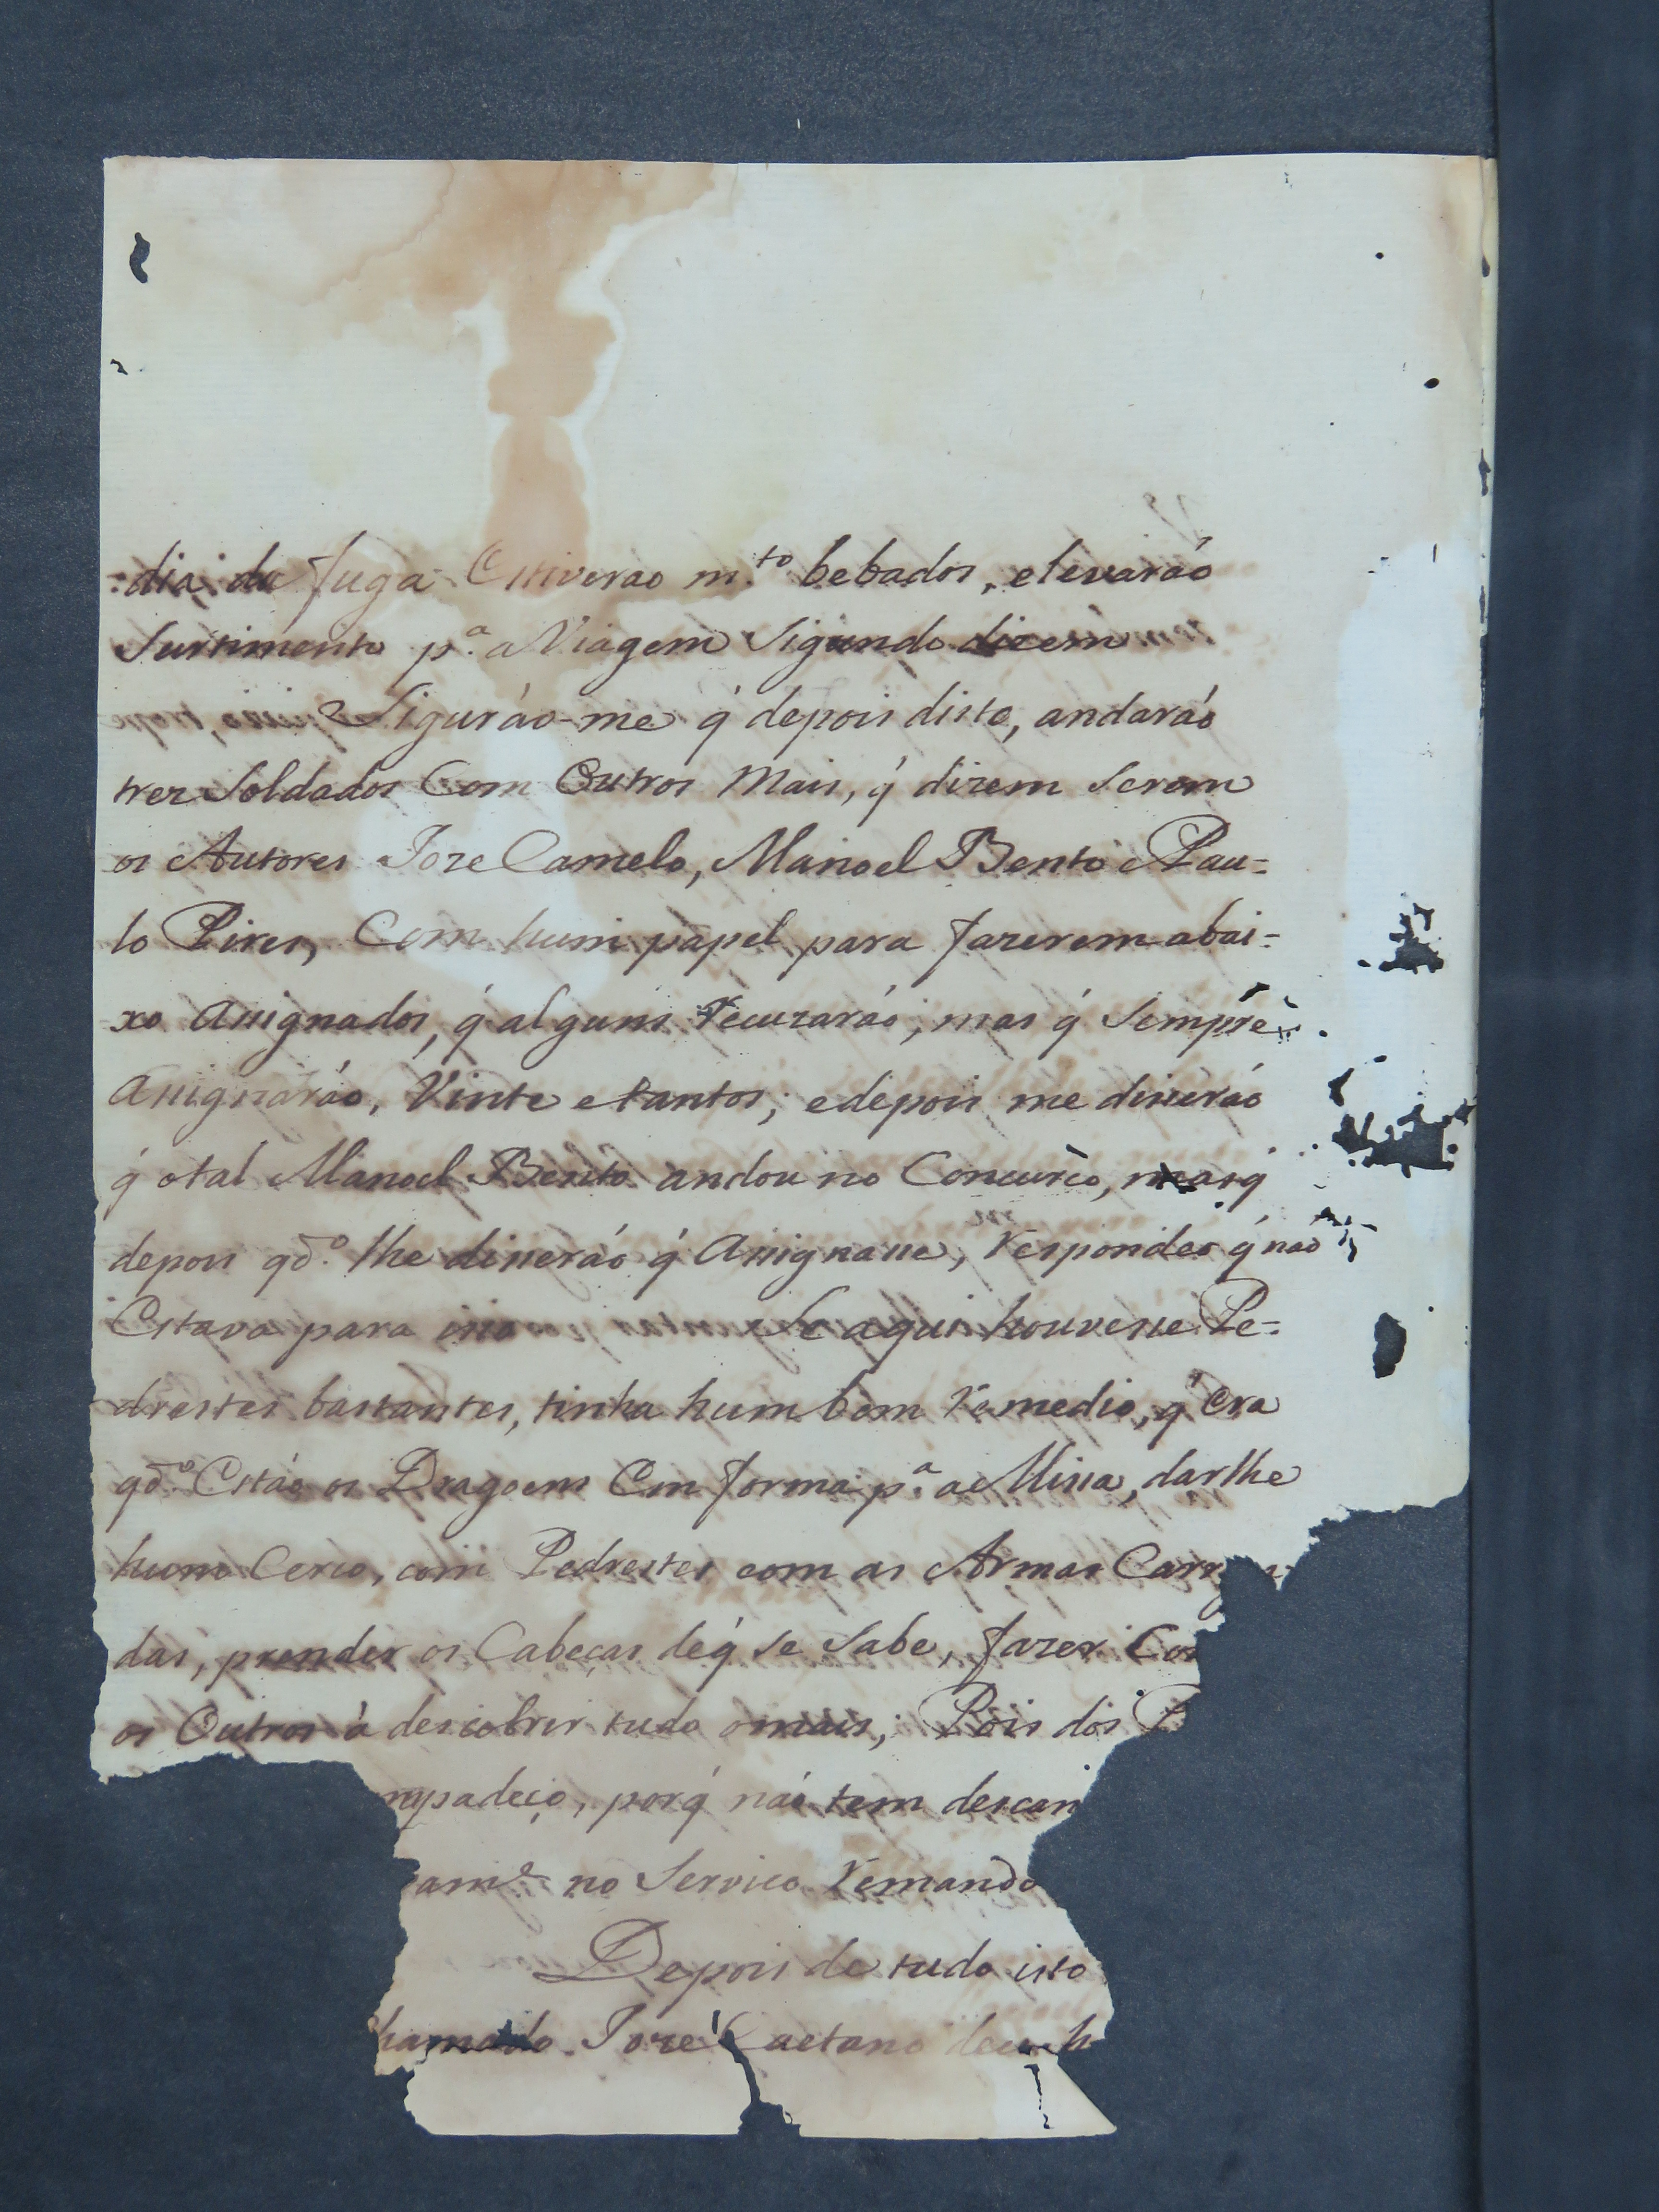 dia da fuga Estiverao m.to bebados, elevaráo
Surtimento p.a a Viagem Sigundo dizem
Sigurão-me q́ depois disto, andaráo
trez Soldados Com Outros Mais, q́ dizem Serem
os Autores Joze Camelo, Manoel Bento e Pau=
lo Pires, Com hum papel para fazerem abai=
xo assignados, q́ alguns Recuzaráo; mas q́ Sempre
Assignaráo, Vinte e tantos; e depois me disseráo
q́ otal Manoel Bento andou no Concurso, mas q́
depois qdo. lhe disseráo q́ Assignasse, Respondeo q́ naõ
Estava para isso Se aqui houvesse Pe=
drestes bastantes, tinha hum bom Remedio, q́ Era
qdo. Estáo os Dragoens Em forma p.a a Missa, darlhe
hum Cerco, com Pedrestes com as Armas Carr
das, prender os Cabeças deq́ Se Sabe, fazer Co
os Outros à descobrir tudo omais; Pois dos P
mpadeço, porq́ náo tem descan
am.e no Serviço Remando
Depois de tudo isto
hamado Joze Caetano